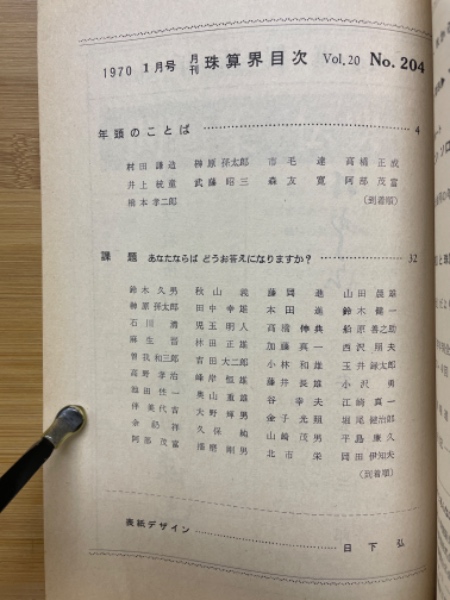 1970 1月号 月刊 珠算界目次 Vol.20 No.204
年頭のことば 4
村田謙造 榊原孫太郎 市毛達 高橋正哉
井上統童 武藤昭三 森友寛 阿部茂富
橋本孝二郎 (到着順)
課題 あなたならば どうお答えになりますか? 32
鈴木久男 秋山 藤岡進 山田晨雄
榊原孫太郎 田中幸雄 本田進 鈴木健一
石川 児玉明人 高橋伸典 船原善之助
麻生 林田正雄 加藤真一 西沢朋夫
曽我和三郎 吉田大二郎 小林和雄 玉井録太郎
高野孝治 峰岸恒雄 藤井長雄 小沢勇
池田 奥山重雄 谷幸夫 江崎真一
伴美代吉 大野輝男 金子光照 堀尾健治郎
余 久保純 山崎茂男 平島廉久
阿部茂富 播磨剛男 北市栄 岡田伊知夫
(到着順)
表紙デザイン 日下弘